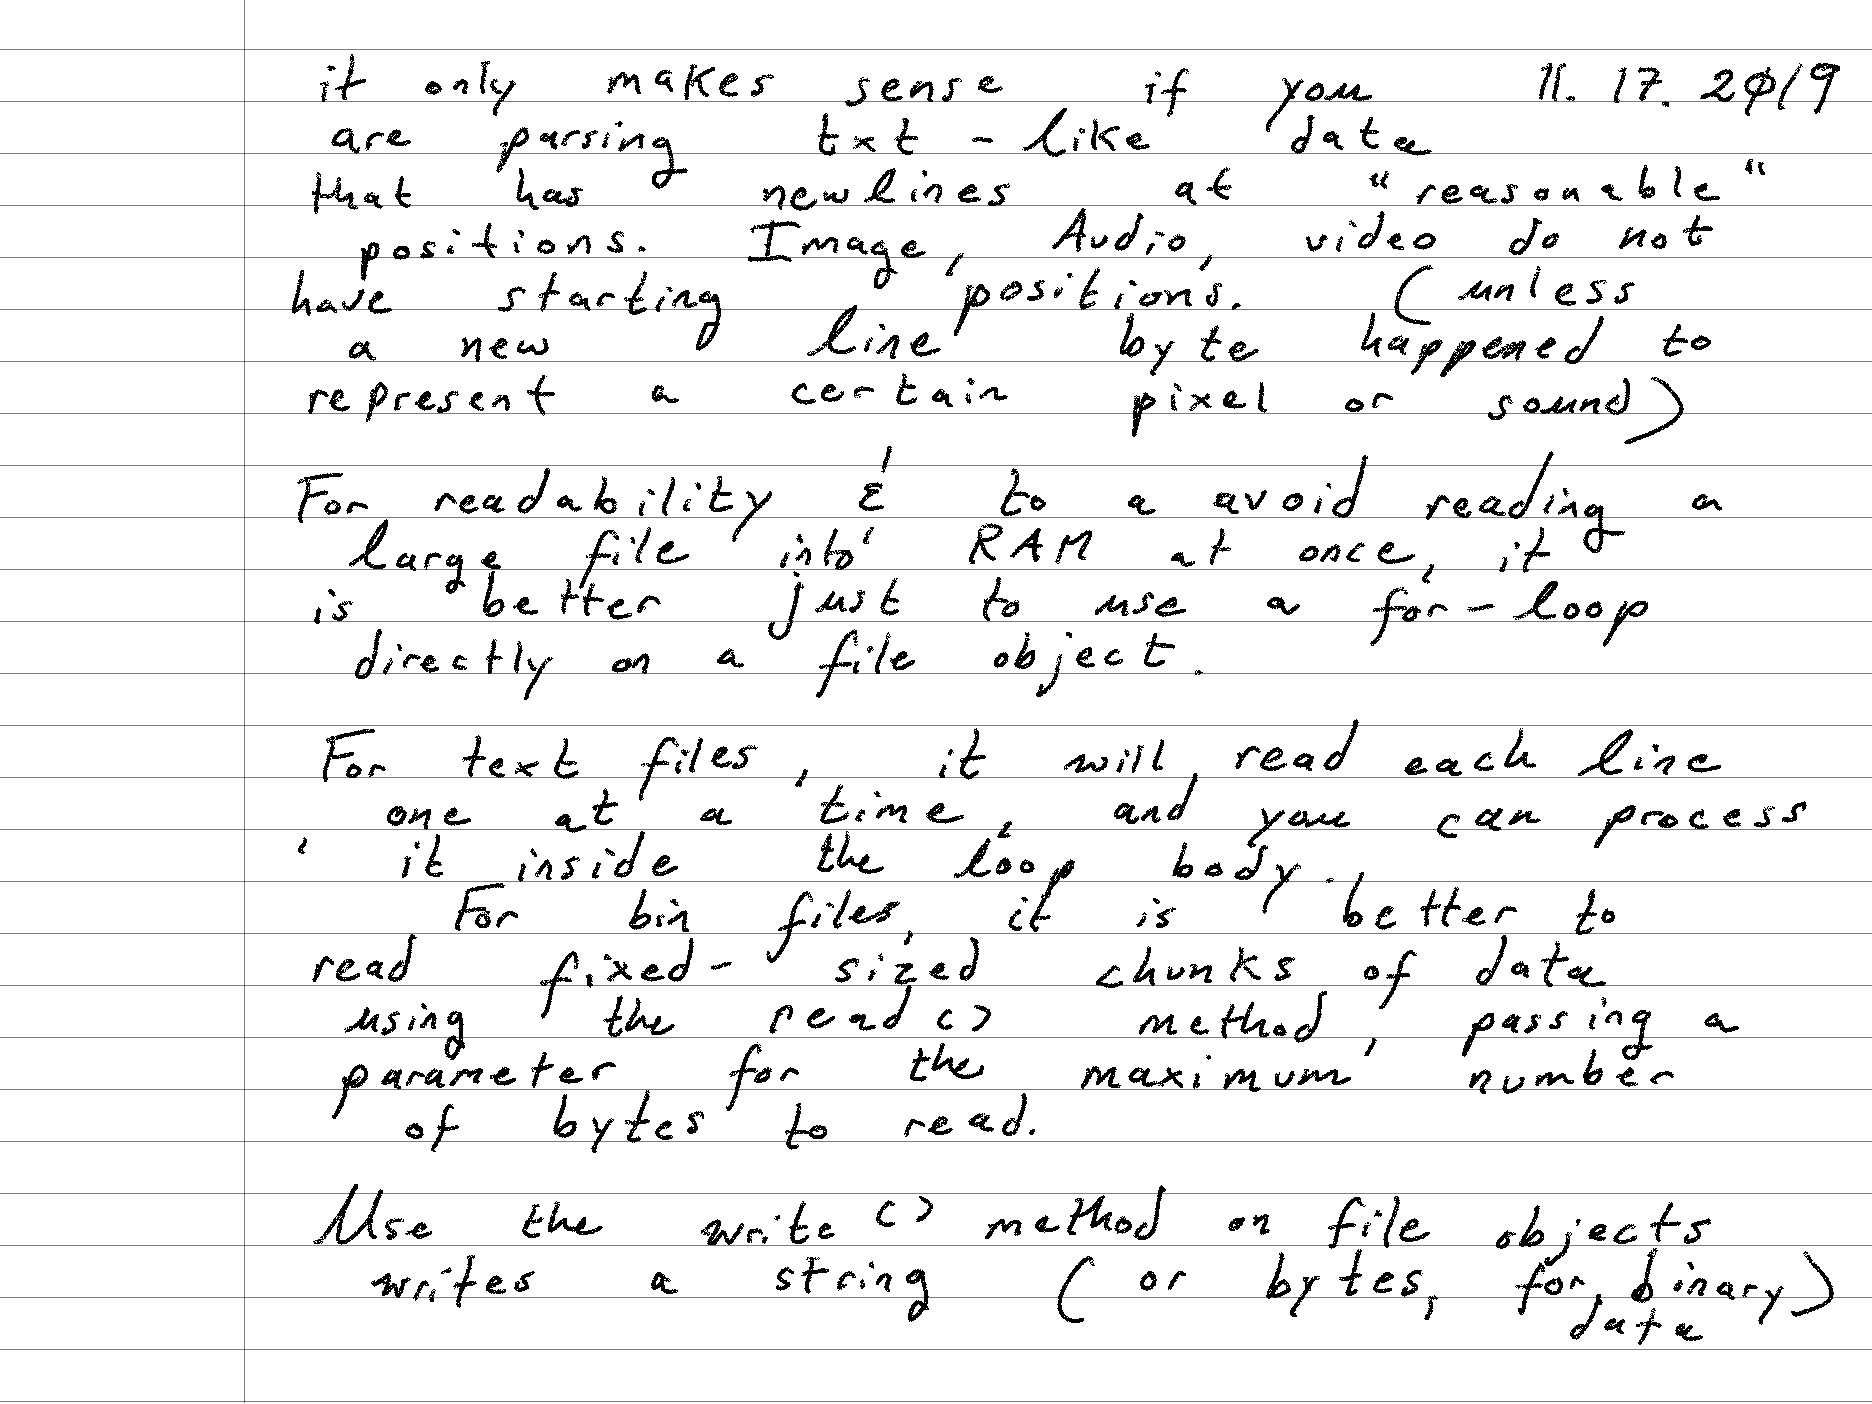 it only makes sense if you 11. 17. 2019
are parsing txt - like data
that has newlines at "reasonable"
positions. Image, Audio, video do not
have starting positions. (unless
a new line byte happened to
represent a certain pixel or sound)
For readability & to a avoid reading a
large file into RAM at once, it
is better just to use a for - loop
directly on a file object.
For text files, it will read each line
one at a time, and you can process
it inside the loop body.
For bin files, it is better to
read fixed - sized chunks of data
using the read () method, passing a
parameter for the maximum number
of bytes to read.
Use the write () method on file objects
writes a string (or bytes, for binary)
data